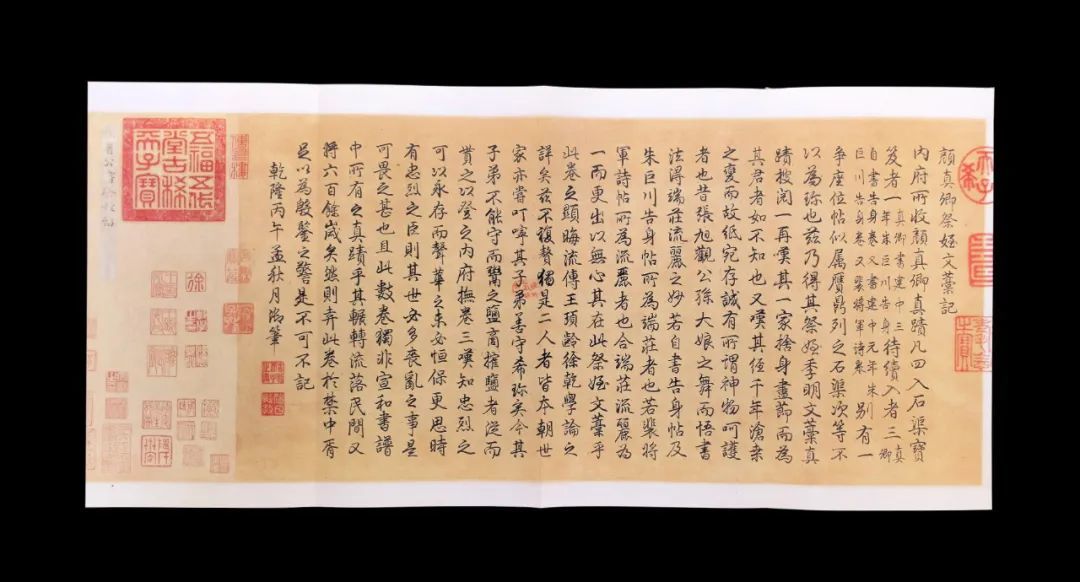 顏真卿祭姪文藁記
內府所收顏真卿真蹟凡四入石渠寶
笈者一真卿書建中三年朱巨川告身待續入者三真卿
自書告身卷又書建中元年朱巨川告身卷又裴將軍詩卷別有一
爭座位帖似属贗鼎列之石渠次等不
以為珍也兹乃得其祭姪季明文藁真
蹟披閱一再嘆其一家捨身盡節而為
其君者如不知也又嘆其經千年滄桒
之變而故紙宛存誠有所謂神物呵護
者也昔張旭觀公孫大娘之舞而悟書
法得端莊流麗之妙若自書告身帖及
朱巨川告身帖所為端莊者也若裴將
軍詩帖所為流麗者也合端莊流麗為
一而更出以無心其在此祭姪文藁乎
此卷之顯晦流傳王頊齡徐乾學論之
詳矣兹不復贅獨是二人者皆本朝世
家亦嘗叮嚀其子弟善守希珍矣今其
子弟不能守而鬻之鹽商擁鹽者從而
貰之以登之內府撫卷三嘆知忠烈之
可以永存而聲華之未必恒保更思時
有忠烈之臣則其世必多喪亂之事是
可畏之甚也且此數卷獨非宣和書譜
中所有之真蹟乎其輾轉流落民間又
將六百餘歲矣然則弆此卷於禁中胥
足以為殷鑒之警是不可不記
乾隆丙午孟秋月御筆
五福五代堂古稀天子寶